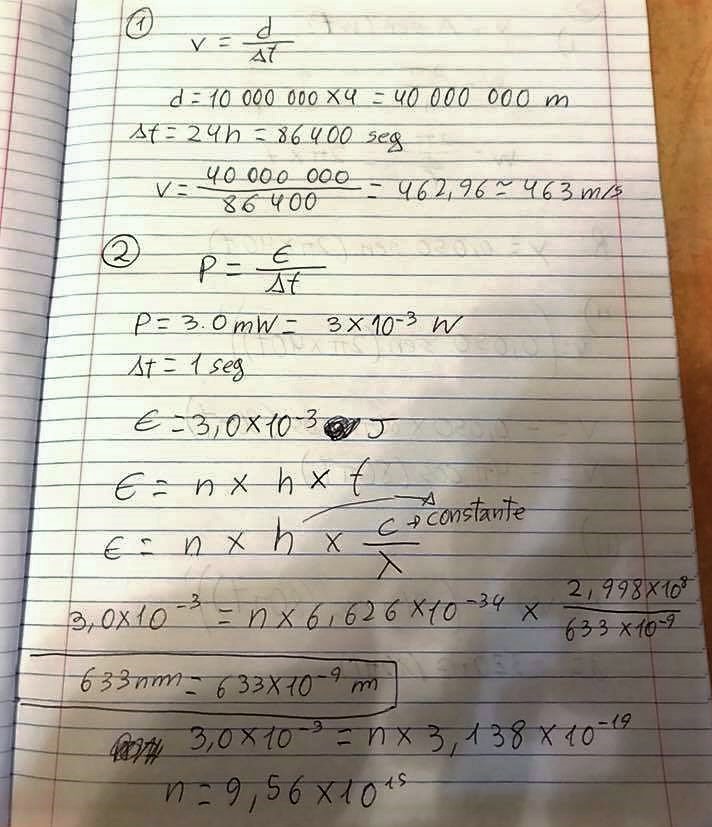 ① v = d/Δt
d = 10 000 000 × 4 = 40 000 000 m
Δt = 24h = 86 400 seg
v = 40 000 000 / 86 400 = 462,96 ≃ 463 m/s
② P = ε/Δt
P = 3.0 mW = 3 × 10⁻³ W
Δt = 1 seg
ε = 3,0 × 10⁻³ J
ε = n × h × f
ε = n × h × c/λ → constante
3,0 × 10⁻³ = n × 6,626 × 10⁻³⁴ × 2,998 × 10⁸ / 633 × 10⁻⁹
633 nm = 633 × 10⁻⁹ m
3,0 × 10⁻³ = n × 3,138 × 10⁻¹⁹
n = 9,56 × 10¹⁵